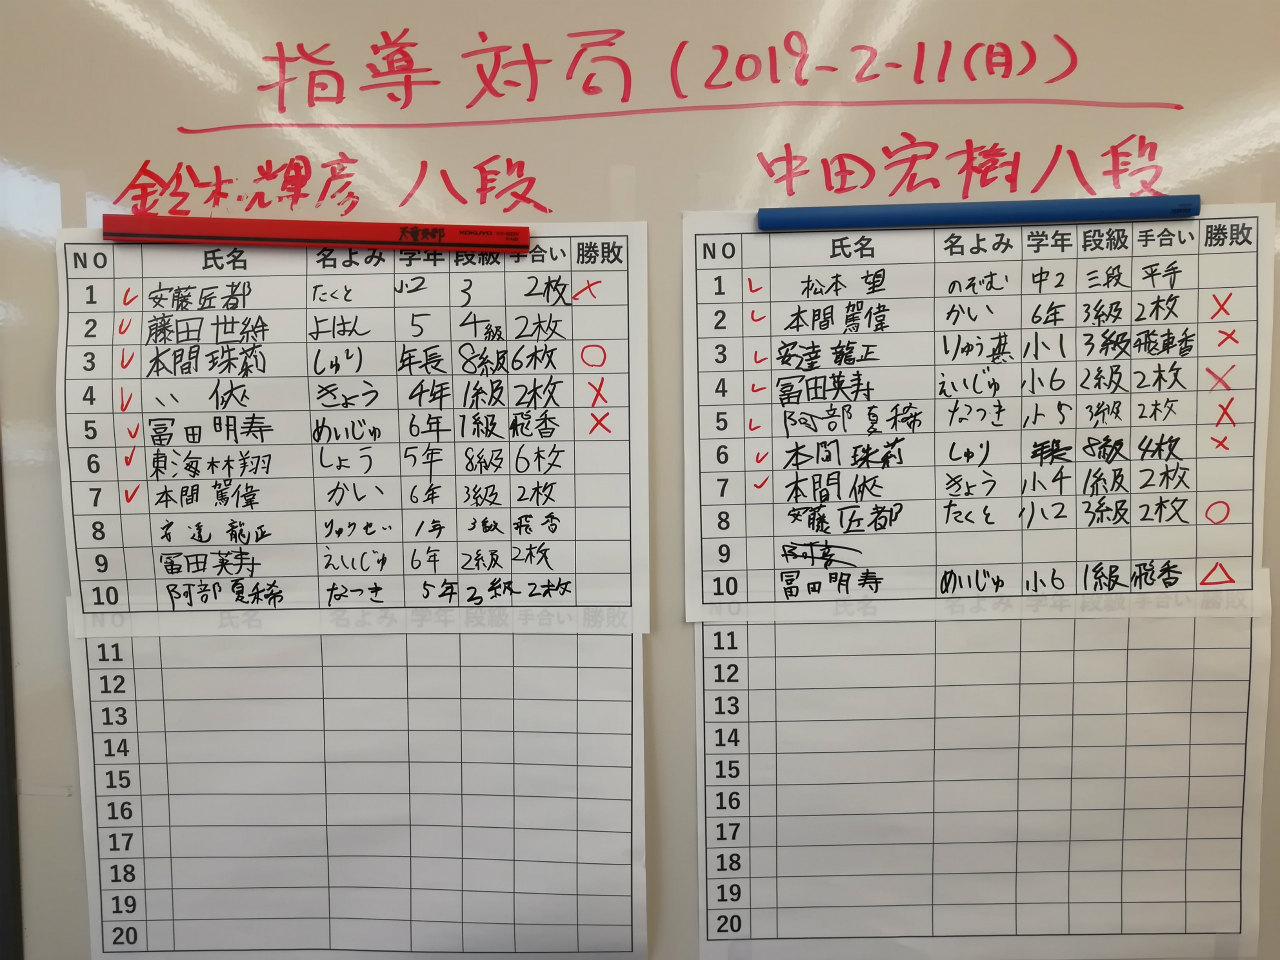 指導対局(2019-2-11(月))
鈴木輝彦 八段
KOKUYO
NO 氏名 名よみ 学年 段級 手合い 勝敗
1 ✓ 安藤匠都 たくと 小2 3 2枚 ×
2 ✓ 藤田世絆 よはん 5 4級 2枚
3 ✓ 本間珠莉 しゅり 年長 8級 6枚 ○
4 ✓ 〃 侠 きょう 4年 1級 2枚 ×
5 ✓ 冨田明寿 めいじゅ 6年 1級 飛香 ×
6 ✓ 東海林翔 しょう 5年 8級 6枚
7 ✓ 本間駕偉 かい 6年 3級 2枚
8 安達龍正 りゅうせい 1年 3級 飛香
9 冨田英寿 えいじゅ 6年 2級 2枚
10 阿部夏稀 なつき 5年 3級 2枚
NO 氏名 名よみ 学年 段級 手合い 勝敗
11
12
13
14
15
16
17
18
19
20
中田宏樹八段
NO 氏名 名よみ 学年 段級 手合い 勝敗
1 ✓ 松本望 のぞむ 中2 三段 平手
2 ✓ 本間駕偉 かい 6年 3級 2枚 ×
3 ✓ 安達龍正 りゅう 小1 3級 飛車香 ×
4 ✓ 冨田英寿 えいじゅ 小6 2級 2枚 ×
5 ✓ 阿部夏稀 なつき 小5 3級 2枚 ×
6 ✓ 本間珠莉 しゅり 年長 8級 4枚 ×
7 ✓ 本間侠 きょう 小4 1級 2枚
8 安藤匠都 たくと 小2 3級 2枚 ○
9
10 冨田明寿 めいじゅ 小6 1級 飛香 △
NO 氏名 名よみ 学年 段級 手合い 勝敗
11
12
13
14
15
16
17
18
19
20